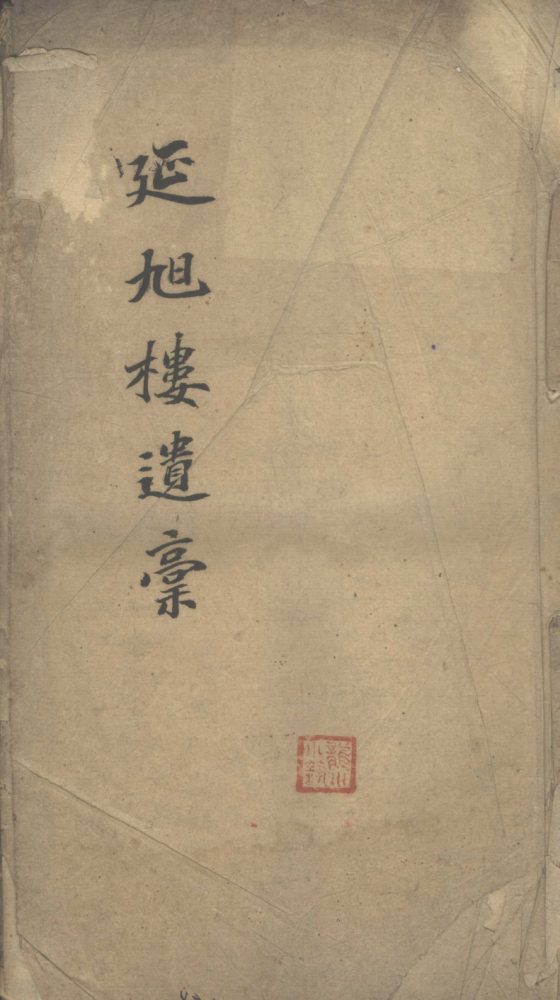 延旭樓遺稾